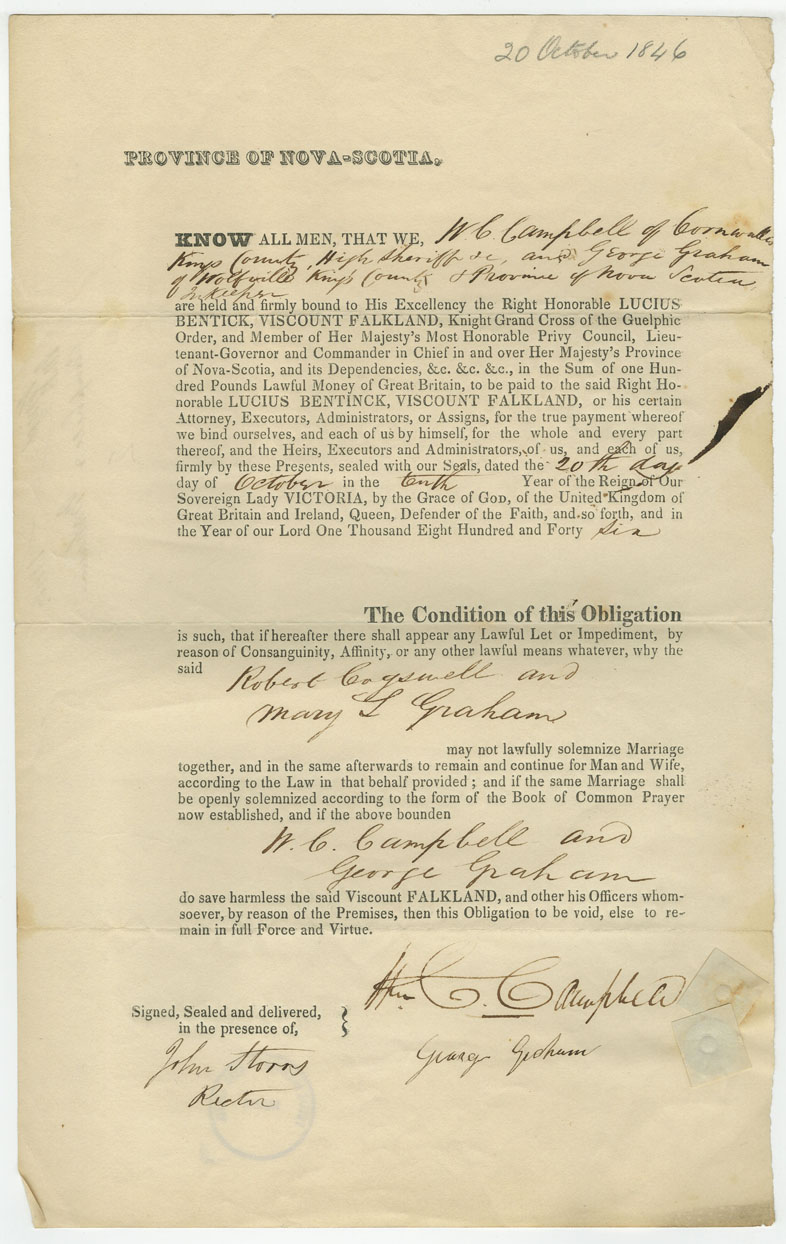 20 October 1846
PROVINCE OF NOVA-SCOTIA.
KNOW ALL MEN, THAT WE, W. C. Campbell of Cornwallis
Kings County, High Sheriff &c, and George Graham
of Wolfville King's County & Province of Nova Scotia
Inkeeper
are held and firmly bound to His Excellency the Right Honorable LUCIUS
BENTICK, VISCOUNT FALKLAND, Knight Grand Cross of the Guelphic
Order, and Member of Her Majesty's Most Honorable Privy Council, Lieu-
tenant-Governor and Commander in Chief in and over Her Majesty's Province
of Nova-Scotia, and its Dependencies, &c. &c. &c., in the Sum of one Hun-
dred Pounds Lawful Money of Great Britain, to be paid to the said Right Ho-
norable LUCIUS BENTINCK, VISCOUNT FALKLAND, or his certain
Attorney, Executors, Administrators, or Assigns, for the true payment whereof
we bind ourselves, and each of us by himself, for the whole and every part
thereof, and the Heirs, Executors and Administrators, of us, and each of us,
firmly by these Presents, sealed with our Seals, dated the 20th day
day of October in the tenth Year of the Reign of Our
Sovereign Lady VICTORIA, by the Grace of GOD, of the United Kingdom of
Great Britain and Ireland, Queen, Defender of the Faith, and so forth, and in
the Year of our Lord One Thousand Eight Hundred and Forty Six
The Condition of this Obligation
is such, that if hereafter there shall appear any Lawful Let or Impediment, by
reason of Consanguinity, Affinity, or any other lawful means whatever, why the
said Robert Cogswell and
Mary L Graham
may not lawfully solemnize Marriage
together, and in the same afterwards to remain and continue for Man and Wife,
according to the Law in that behalf provided ; and if the same Marriage shall
be openly solemnized according to the form of the Book of Common Prayer
now established, and if the above bounden
W. C. Campbell and
George Graham
do save harmless the said Viscount FALKLAND, and other his Officers whom-
soever, by reason of the Premises, then this Obligation to be void, else to re-
main in full Force and Virtue.
Wm C. Campbell
Signed, Sealed and delivered,
in the presence of,
George Graham
John Storrs
Rector